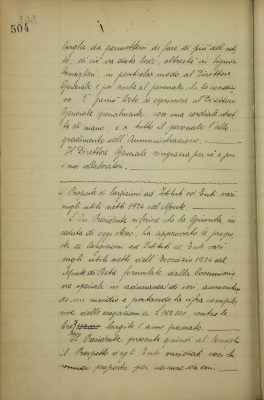 504
larghe da permettersi di fare di più del soli-
to, ciò va data lode, oltreché ai Signori
Consiglieri, in particolar modo al Direttore
Generale e poi anche al personale che lo coadiu-
va. È perciò lieto di esprimere al Direttore
Generale specialmente, con una cordiale stret-
ta di mano, e a tutto il personale l'alto
gradimento dell'Amministrazione.
Il Direttore Generale ringrazia per sé e per
i suoi collaboratori.
Proposte di largizioni ad Istituti ed Enti vari
sugli utili netti 1924 del Monte.
Il Sig. Presidente riferisce che la Giunta in
seduta di oggi stesso, ha approvato le propo-
ste di largizioni ad Istituti ed Enti vari
sugli utili netti dell'Esercizio 1924 del
Monte di Pietà formulate dalla Commissio-
ne speciale in adunanza di ieri, aumentan-
do un sussidio e portando la cifra comples-
siva delle erogazioni a contro le
largite l'anno passato.
Il Presidente presenta quindi al Consiglio
il Prospetto degli Enti sussidiati con la
somma proposta per ciascuno di essi.